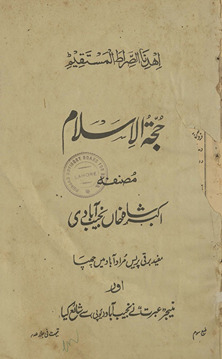 اِهْدِنَا الصِّرَاطَ الْمُسْتَقِيْمَ
حُجّةُ الاِسلام
مصنفہ
اکبر شاہ خاں نجیب آبادی
مفید برقی پریس مراد آباد میں چھپا
اور
منیجر عبرت نے نجیب آباد (یوپی) سے شائع کیا